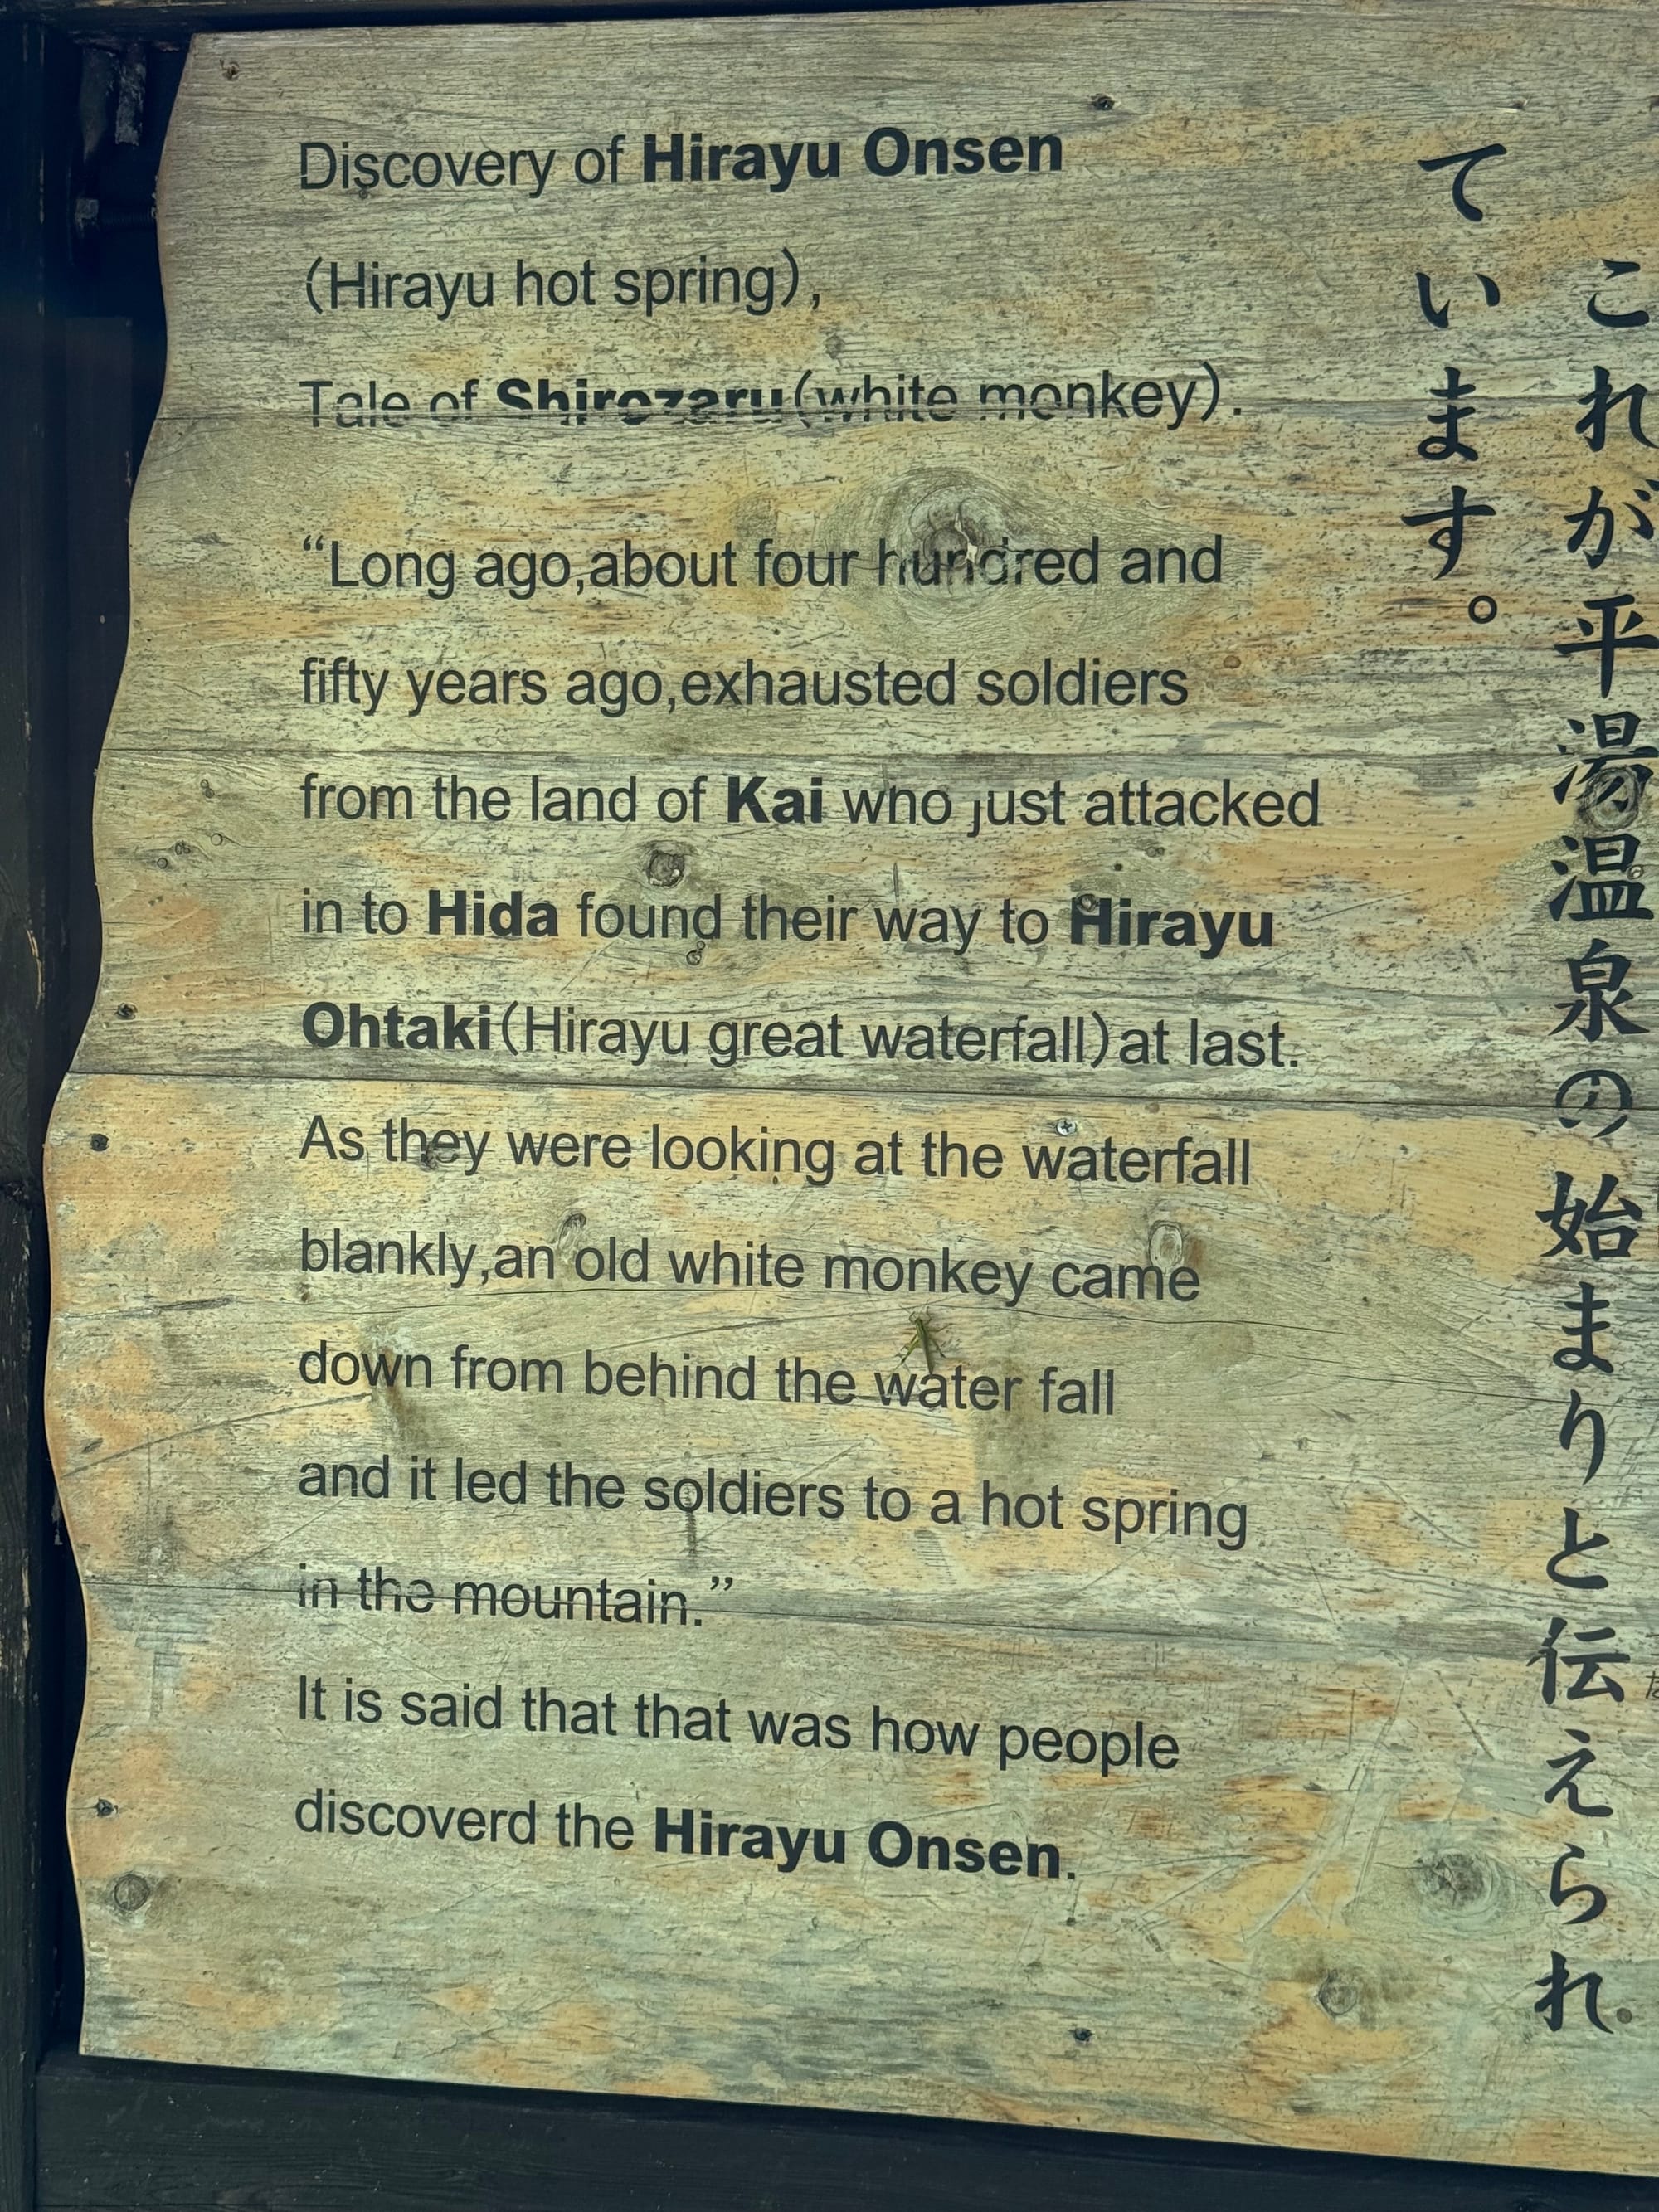 Discovery of Hirayu Onsen
(Hirayu hot spring),
Tale of Shirozaru(white monkey).
“Long ago,about four hundred and
fifty years ago,exhausted soldiers
from the land of Kai who just attacked
in to Hida found their way to Hirayu
Ohtaki(Hirayu great waterfall)at last.
As they were looking at the waterfall
blankly,an old white monkey came
down from behind the water fall
and it led the soldiers to a hot spring
in the mountain.”
It is said that that was how people
discoverd the Hirayu Onsen.
これが平湯温泉の始まりと伝えられ
ています。